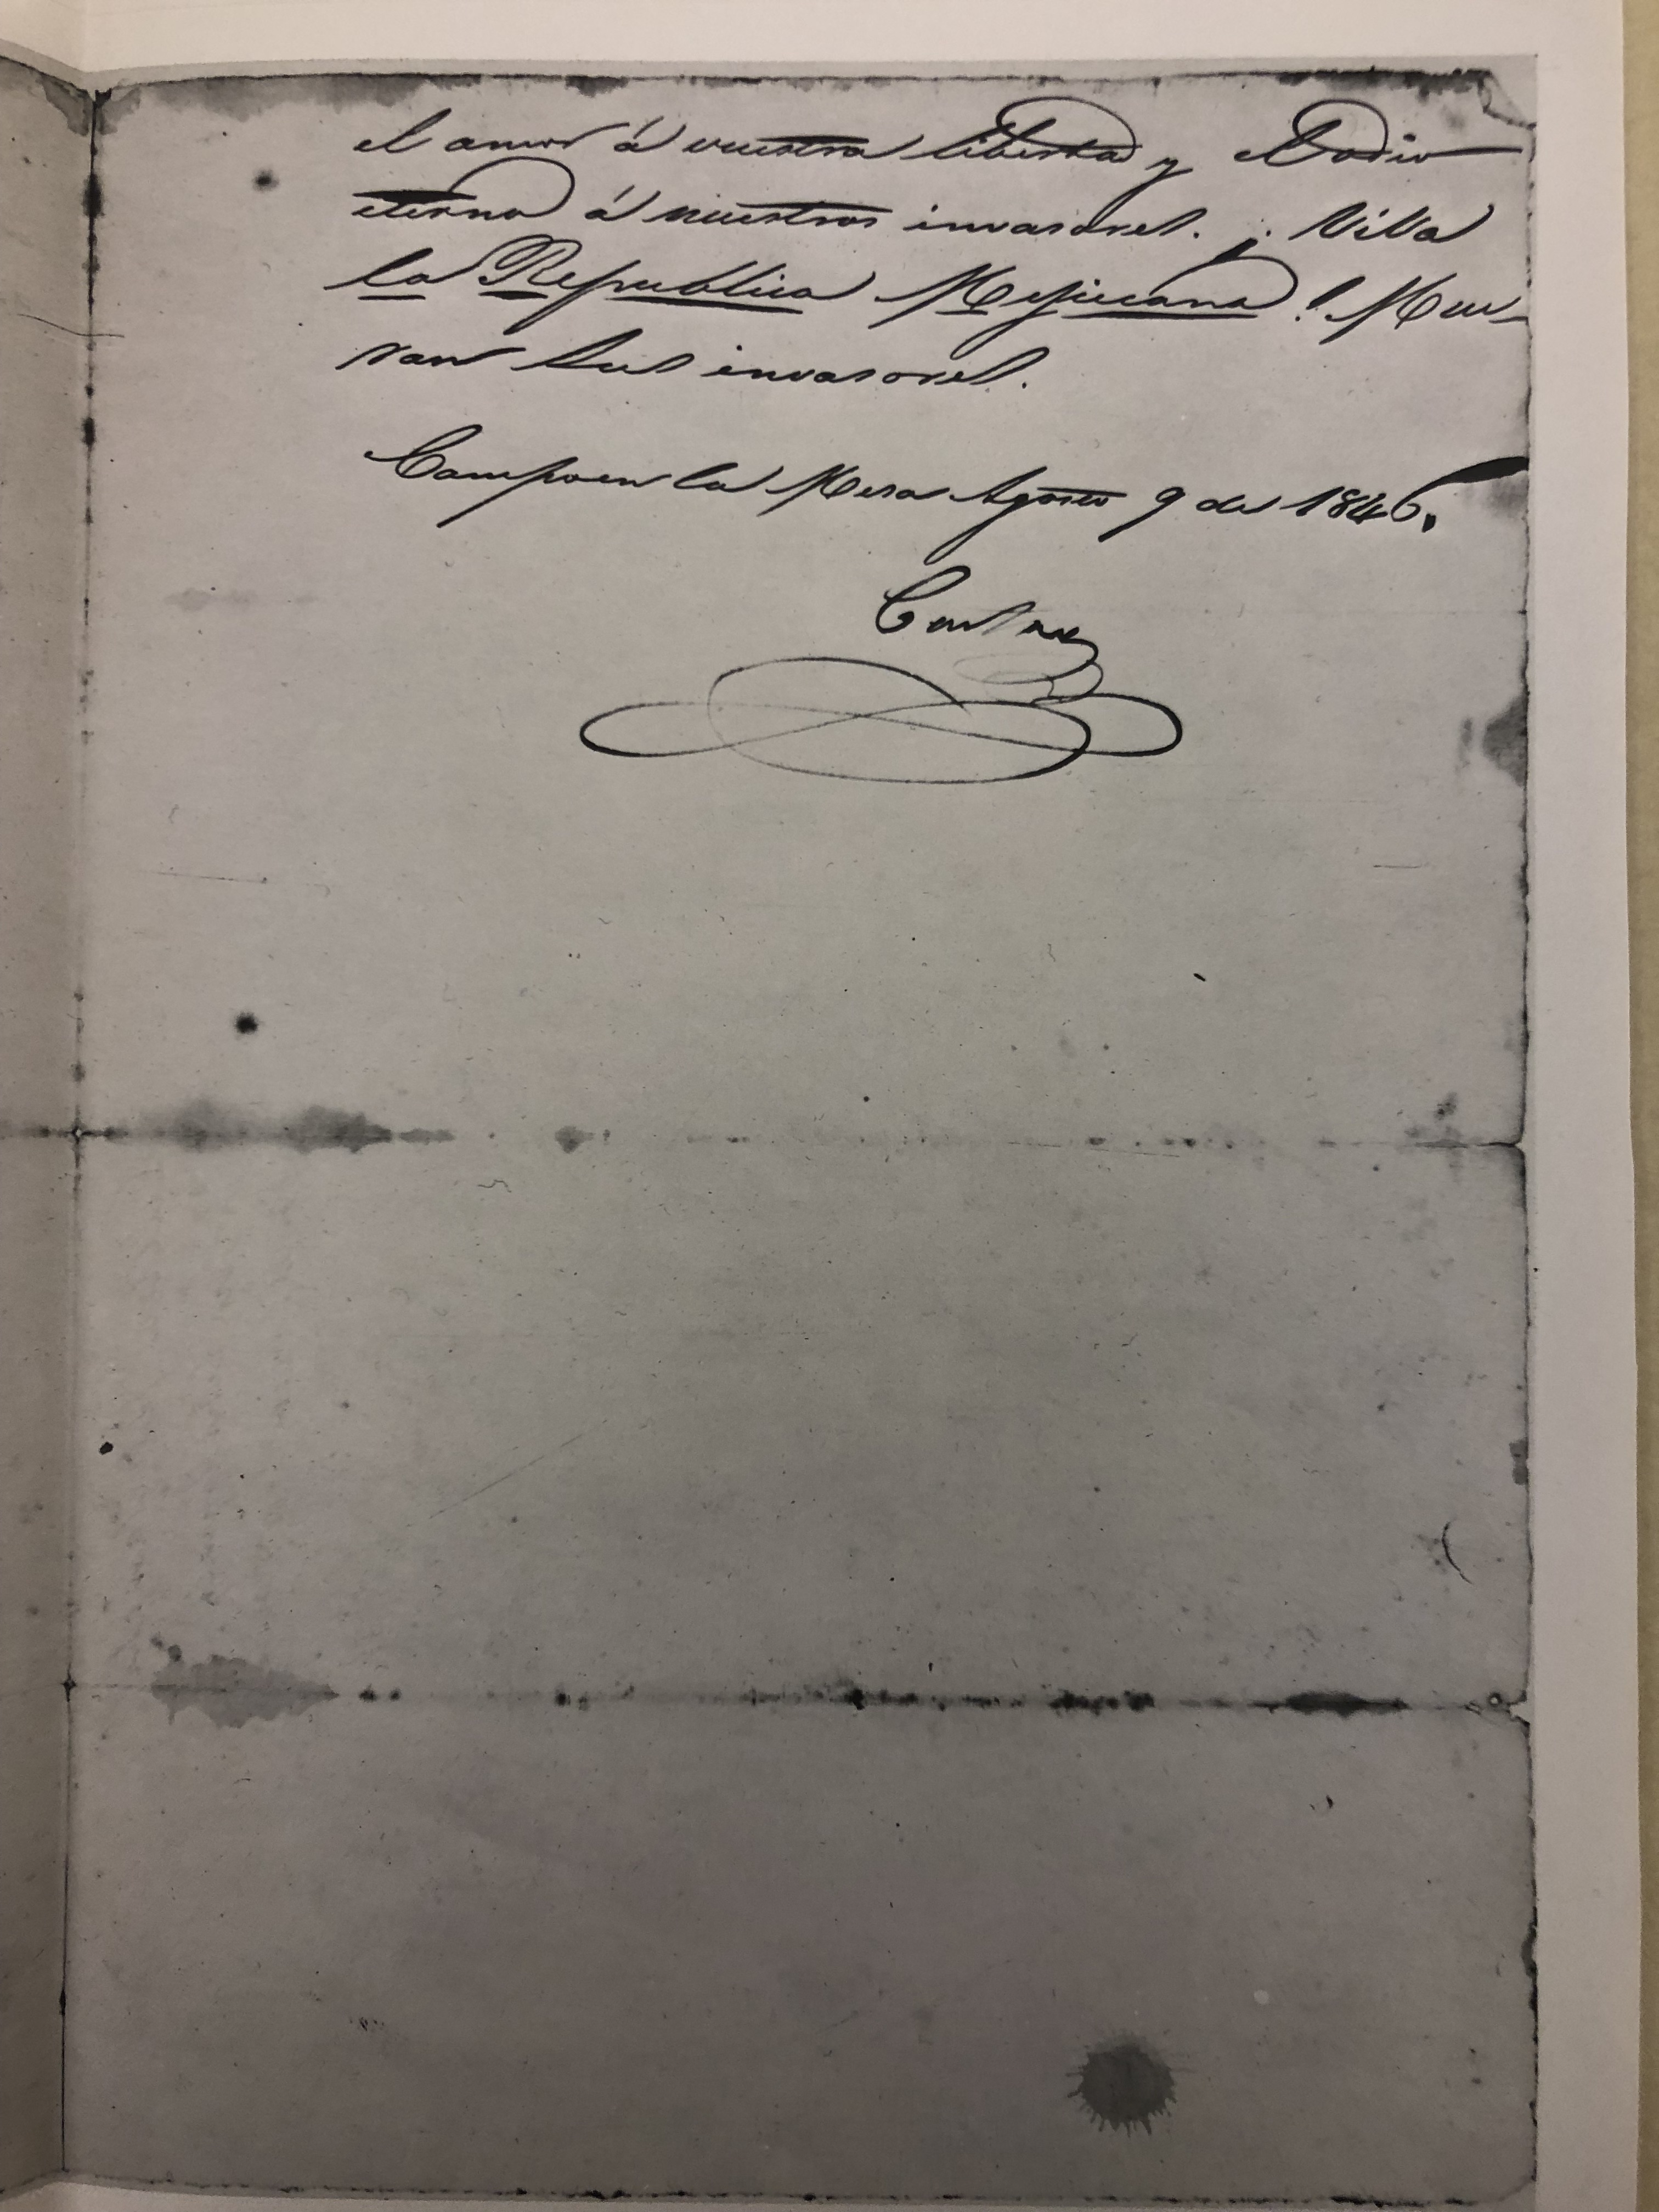 el amor á vuestra libertad y el odio
eterno á nuestros invasores. ¡Viva
la Republica Mejicana! Mue-
ran sus invasores.
Campo en la Mesa Agosto 9 de 1846.
Castro